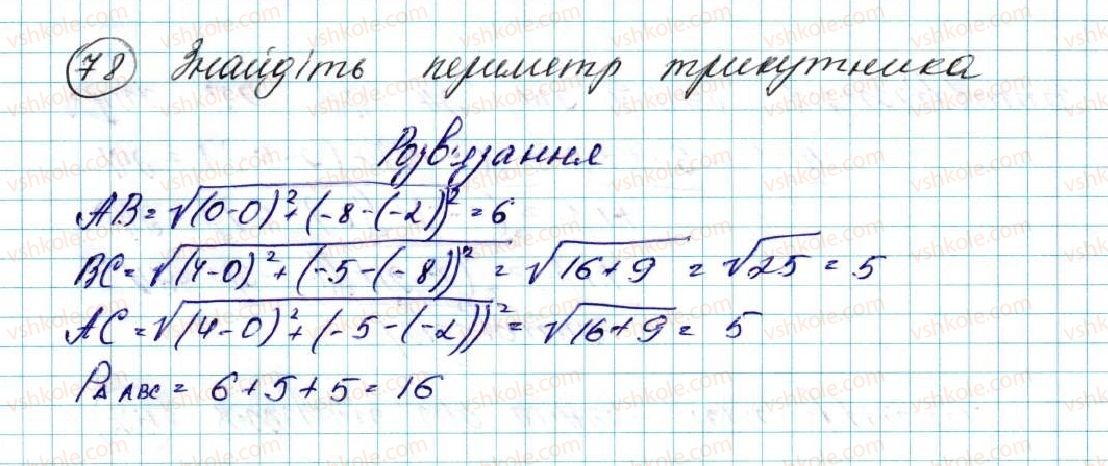 78 Знайдіть периметр трикутника
Розв'язання
AB = √(0-0)² + (-8-(-2))² = 6
BC = √(4-0)² + (-5-(-8))² = √16+9 = √25 = 5
AC = √(4-0)² + (-5-(-2))² = √16+9 = 5
P△ABC = 6+5+5 = 16